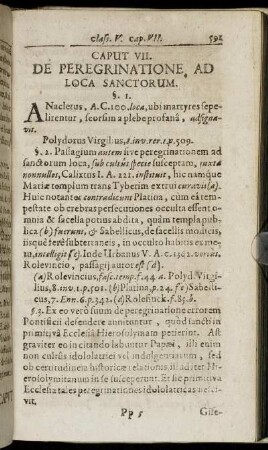 Claſſ. V. Cap. VII. 592
CAPUT VII.
DE PEREGRINATIONE AD
LOCA SANCTORUM.
§. 1.
ANacletus, A. C. 100. loca, ubi martyres ſepe-
lirentur, ſeorſim a plebe profanâ, adſigna-
vit.
Polydorus Virgilius, 8. inv. rer. 1. p. 509.
§. 2. Paſſagium autem ſive peregrinationem ad
ſanctorum loca, ſub cultûs ſpecie ſuſceptam, juxta
nonnullos, Calixtus I. A. 221. inſtituit, hic namque
Mariæ templum trans Tyberim extrui curavit (a).
Huic notantor contradicum Platina, cum ea tem-
peſtate ob crebras perſecutiones occulta eſſent o-
mnia & ſacella potius abdita, quàm templa publi-
ca (b) fuerint, & Sabellicus, de ſacellis modicis,
iisque ferè ſubterraneis, in occulto habitis ec me-
tu, intelligit (c). Inde Urbanus V. A. C. 1362. verus,
Rolevincio, paſſagij autor eſt (d).
(a) Rolevincius, faſc. temp. f. 44. a. Polyd. Virgi-
lius, 8. inv. 1. p. 501. (b) Platina, p. 24. f. (c) Sabelli-
cus, 7. Enn. 6. p. 342. (d) Rolefinck. f. 85. b.
§. 3. Ex eo verò ſuum de peregrinatione errorem
Pontificii defendere annituntur, quòd ſancti in
primitivâ Eccleſiâ Hieroſolymam petierint. Aſt
graviter eo in citando labuntur Papæi, in illum
non cultus idololatrici vel indulgentiarum, ſed
ob certitudinem hiſtoricæ relationis, illud iter Hi-
eroſolymitanum in ſe ſuſceperunt. Et ſic primitiva
Eccleſia tales peregrinationes idololatricas neſci-
vit.
Pp 5 Giſe-